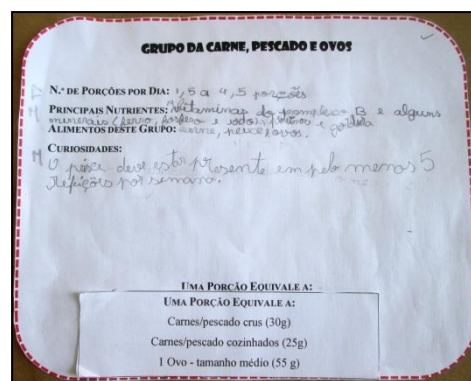 GRUPO DA CARNE, PESCADO E OVOS
N.º DE PORÇÕES POR DIA: 1,5 a 4,5 porções
PRINCIPAIS NUTRIENTES: Vitaminas do complexo B e alguns
minerais (ferro, fósforo e iodo), e gordura
ALIMENTOS DESTE GRUPO: carne, peixe e ovos.
CURIOSIDADES:
O peixe deve estar presente em pelo menos 5
refeições por semana.
UMA PORÇÃO EQUIVALE A:
UMA PORÇÃO EQUIVALE A:
Carnes/pescado crus (30g)
Carnes/pescado cozinhados (25g)
1 Ovo - tamanho médio (55 g)